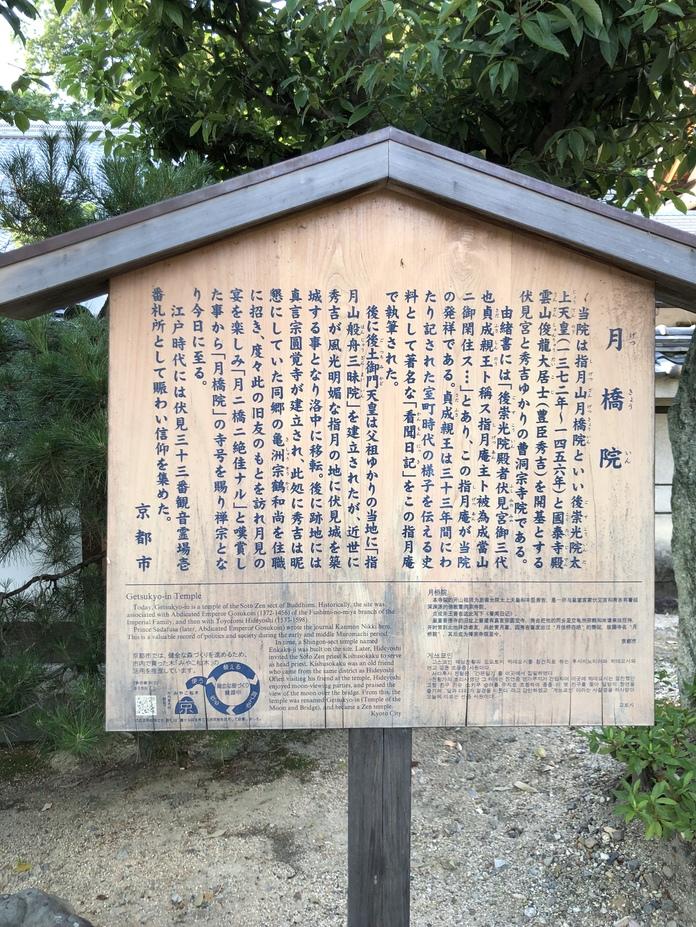 月橋院
げつ きょう いん
当院は指月山月橋院といい後崇光院太
上天皇(一三七二年~一四五六年)と國泰寺殿
雲山俊龍大居士(豊臣秀吉)を開基とする
伏見宮と秀吉ゆかりの曹洞宗寺院である。
由緒書には「後崇光院殿者伏見宮御三代
也貞成親王ト称ス指月庵主ト被為成當山
二御閑住ス…」とあり、この指月庵が当院
の発祥である。貞成親王は三十三年間にわ
たり記された室町時代の様子を伝える史
料として著名な「看聞日記」をこの指月庵
で執筆された。
後に後土御門天皇は父祖ゆかりの当地に「指
月山般舟三昧院」を建立されたが、近世に
秀吉が風光明媚な指月の地に伏見城を築
城する事となり洛中に移転。後に跡地には
真言宗圓覚寺が建立され、此処に秀吉は昵
懇にしていた同郷の亀洲宗鶴和尚を住職
に招き、度々此の旧友のもとを訪れ月見の
宴を楽しみ「月二橋二絶佳ナル」と嘆賞し
た事から「月橋院」の寺号を賜り禅宗とな
り今日に至る。
江戸時代には伏見三十三番観音霊場壱
番札所として賑わい信仰を集めた。
京都市
Getsukyo-in Temple
Today, Getsukyo-in is a temple of the Soto Zen sect of Buddhism. Historically, the site was
associated with Abdicated Emperor Gosukoin (1372-1456) of the Fushimi-no-miya branch of the
Imperial Family, and then with Toyotomi Hideyoshi (1537-1598).
Prince Sadafusa (later, Abdicated Emperor Gosukoin) wrote the journal Kanmon Nikki here.
This is a valuable record of politics and society during the early and middle Muromachi period.
In time, a Shingon-sect temple named
Enkaku-ji was built on the site. Later, Hideyoshi
invited the Soto Zen priest Kishusokaku to serve
as head priest. Kishusokaku was an old friend
who came from the same district as Hideyoshi.
Often visiting his friend at the temple, Hideyoshi
enjoyed moon-viewing parties, and praised the
view of the moon over the bridge. From this, the
temple was renamed Getsukyo-in (Temple of the
Moon and Bridge), and became a Zen temple.
Kyoto City
京都市では、健全な森づくりを進めるため、
市内で育った木「みやこ杣木」の
活用を推進しています。
みやこ杣木
京
植える
使う
健全な森づくり
循環の環
月桥院
京都市
게쓰쿄인
교토시